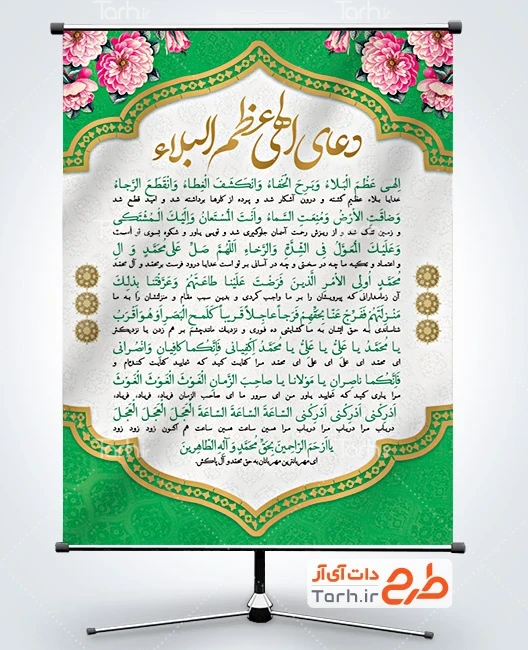 دعای الهی عظم البلاء
اِلهی عَظُمَ الْبَلاءُ وَبَرِحَ الْخَفاءُ وَانْکَشَفَ الْغِطاءُ وَانْقَطَعَ الرَّجاءُ
خدایا بلاء عظیم گشته و درون آشکار شد و پرده از کارها برداشته شد و امید قطع شد
وَضاقَتِ الْاَرْضُ وَمُنِعَتِ السَّماءُ وَاَنْتَ الْمُسْتَعانُ وَاِلَیْکَ الْمُشْتَکی
و زمین تنگ شد و از ریزش رحمت آسمان جلوگیری شد و تویی یاور و شکوه بسوی تو است
وَعَلَیْکَ الْمُعَوَّلُ فِی الشِّدَّةِ وَالرَّخاءِ اَللّهُمَّ صَلِّ عَلی مُحَمَّدٍ وَ الِ
و اعتماد و تکیه ما چه در سختی و چه در آسانی بر تو است خدایا درود فرست برمحمد و آل محمد
مُحَمَّدٍ اُولِی الْاَمْرِ الَّذینَ فَرَضْتَ عَلَیْنا طاعَتَهُمْ وَعَرَّفْتَنا بِذلِکَ
آن زمامدارانی که پیرویشان را بر ما واجب کردی و بدین سبب مقام و منزلتشان را به ما
مَنْزِلَتَهُمْ فَفَرِّجْ عَنّا بِحَقِّهِمْ فَرَجاً عاجِلاً قَریباً کَلَمْحِ الْبَصَرِ اَوْ هُوَ اَقْرَبُ
شناساندی به حق ایشان به ما گشایشی ده فوری و نزدیک مانندچشم بر هم زدن یا نزدیکتر
یا مُحَمَّدُ یا عَلِیُّ یا عَلِیُّ یا مُحَمَّدُ اِکْفِیانی فَاِنَّکُما کافِیانِ وَانْصُرانی
ای محمد ای علی ای علی ای محمد مرا کفایت کنید که شمایید کفایت کننده‌ام و
فَاِنَّکُما ناصِرانِ یا مَوْلانا یا صاحِبَ الزَّمانِ الْغَوْثَ الْغَوْثَ الْغَوْثَ
مرا یاری کنید که شمایید یاور من ای سرور ما ای صاحب الزمان فریاد، فریاد، فریاد،
اَدْرِکْنی اَدْرِکْنی اَدْرِکْنی السّاعَةَ السّاعَةَ السّاعَةَ الْعَجَلَ الْعَجَلَ الْعَجَلَ
دریاب مرا دریاب مرا دریاب مرا همین ساعت همین ساعت هم اکنون زود زود زود
یا اَرْحَمَ الرّاحِمینَ بِحَقِّ مُحَمَّدٍ وَآلِهِ الطّاهِرینَ
ای مهربانترین مهربانان به حق محمد و آل پاکش.
طرح دات آی‌آر
Tarh.ir